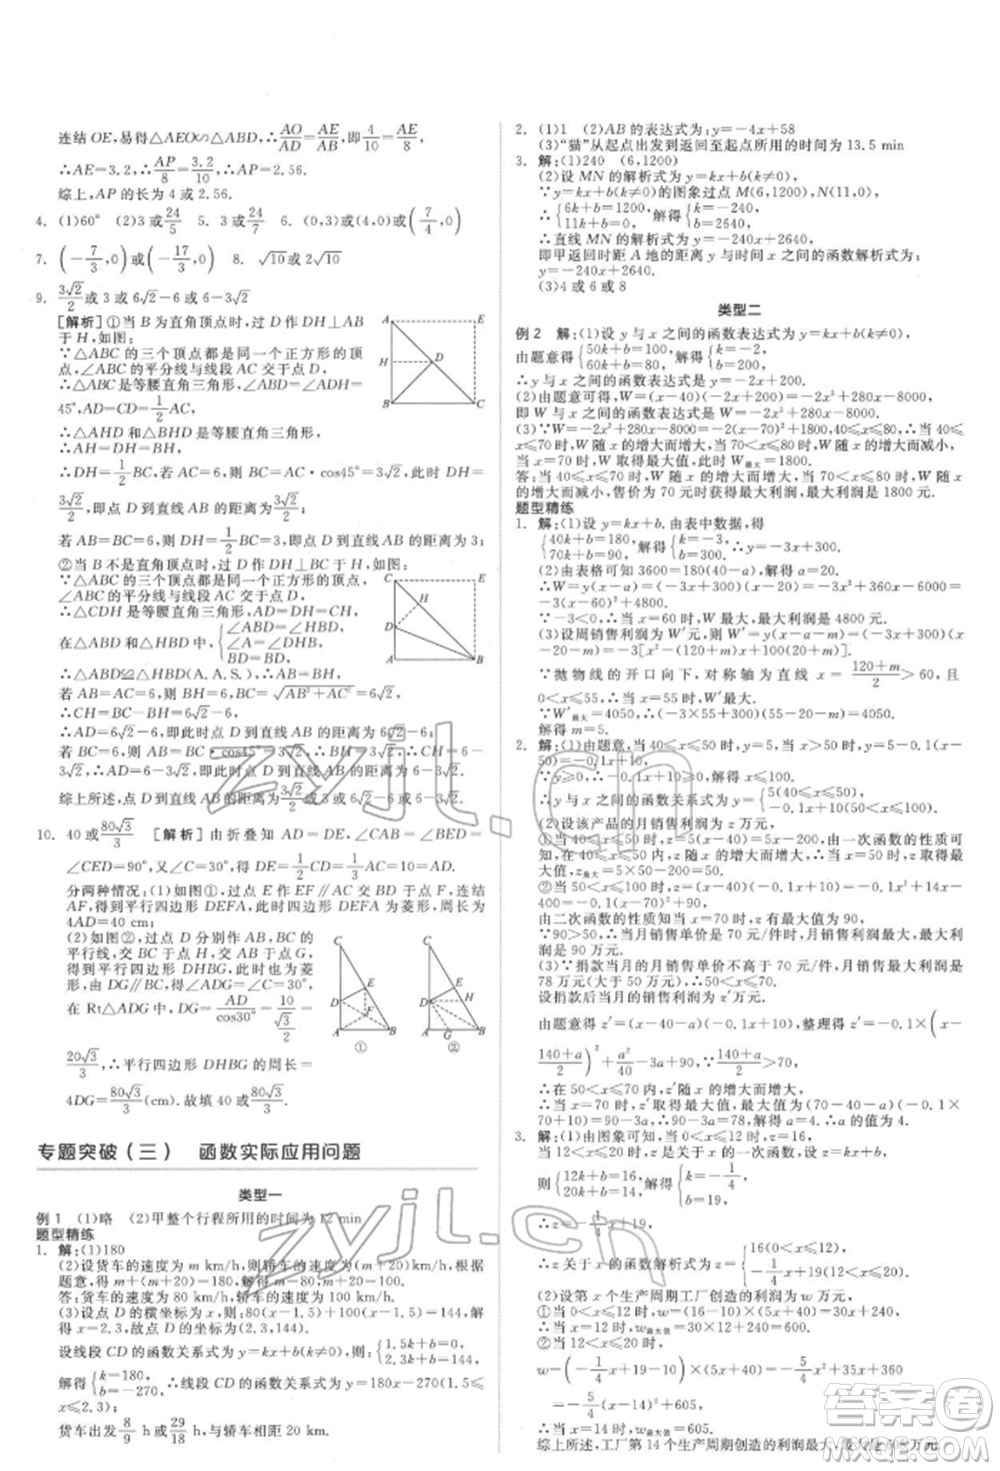 连结 OE,易得△AEO∽△ABD,∴AO/AD=AE/AB,即4/10=AE/8
∴AE=3.2,AP/8=3.2/10,∴AP=2.56.
综上,AP 的长为 4 或 2.56.
4. (1)60° (2)3或24/5 5. 3或24/5 6. (0,3)或(4,0)或(7/4,0)
7. (-7/3,0)或(-17/3,0) 8. √10或2√10
9. 3√2/2 或 3 或 6√2-6 或 6-3√2
[解析]①当 B 为直角顶点时,过 D 作 DH⊥AB
于 H,如图:
∵△ABC 的三个顶点都是一个正方形的顶
点,∠ABC 的平分线与直线 AC 交于点 D,
∴△ABC 是等腰直角三角形,∠ABD=∠ADH=
45°,AD=CD=1/2AC,
∴△AHD 和△BHD 是等腰直角三角形,
∴DH=1/2BC,若 AC=6,则 BC=AC·cos45°=3√2,此时 DH=
3√2/2,即点 D 到直线 AB 的距离为3√2/2;
若 AB=BC=6,则 DH=1/2BC=3,即点 D 到直线 AB 的距离为 3;
②当 B 不是直角顶点时,过 D 作 DH⊥BC 于 H,如图:
∵△ABC 的三个顶点都是一个正方形的顶点,
∠ABC 的平分线与直线 AC 交于点 D,
∴△CDH 是等腰直角三角形,AD=DH=CH,
在△ABD 和△HBD 中,{∠ABD=∠HBD, ∠A=∠DHB, BD=BD,
∴△ABD≌△HBD(A.A.S.),∴AB=BH.
若 AC=AB=6,则 BH=6,BC=√(AB²+AC²)=6√2,
∴CH=BC-BH=6√2-6,
∴AD=6√2-6,即此时点 D 到直线 AB 的距离为 6√2-6;
若 BC=6,则 AB=BC·cos45°=3√2,∴BH=3√2,∴CH=6-
3√2,∴AD=6-3√2,即此时点 D 到直线 AB 的距离为 6-3√2.
综上所述,点 D 到直线 AB 的距离为3√2/2或 3 或 6√2-6 或 6-3√2.
10. 40 或80√3/3 [解析]由折叠知 AD=DE,∠A=∠BED=
∠CED=90°,又∠C=30°,可得 DE=1/2CD=10=AD.
分两种情况:(1)如图①,过点 E 作 EF∥AC 交 BC 于点 F,连结
AF,得到平行四边形 DEFA,此时四边形 DEFA 为菱形,周长为
4AD=40 cm;
(2)如图②,过点 D 分别作 AB,BC 的平行
线,交 BC 于点 H,交 AB 于点 G,
得到平行四边形 DHBG,此时四边形为菱
形,由 DG∥BC,可得∠ADG=30°,
在 Rt△ADG 中,DG=AD/cos30°=10/(√3/2)=
20√3/3,∴平行四边形 DHBG 的周长=
4DG=80√3/3(cm).故填 40 或80√3/3.
A
B
C
D
E
H
A
B
C
D
E
H
①
②
专题突破(三) 函数实际应用问题
类型一
例 1 (1)略 (2)甲整个行程所用的时间为 12 min
题型精练
1. 解:(1)180
(2)设货车的速度为 m km/h,轿车的速度为(m+20)km/h,根据
题意,得 m+(m+20)=180,解得 m=80,∴m+20=100.
答:货车的速度为 80 km/h,轿车的速度为 100 km/h.
(3)设点 D 的横坐标为 x,则:80(x-1.5)+100(x-1.5)=144,
解得 x=2.3,故点 D 的坐标为(2.3,144).
设线段 CD 的函数关系式为 y=kx+b,则:{1.5k+b=0, 2.3k+b=144,
解得{k=180, b=-270,∴线段 CD 的函数关系式为 y=180x-270(1.5≤
x≤2.3).
货车出发8/9 h或29/18 h,与轿车相距 20 km.
2. (1)1 (2)AB 的表达式为 y=-4x+58
(3)“猫”从起点出发到返回至起点所用的时间为 13.5 min
3. 解:(1)240 (6,1200)
(2)设 MN 的解析式为 y=kx+b(k≠0),
∵y=kx+b(k≠0)的图象过点 M(6,1200),N(11,0),
∴{6k+b=1200, 11k+b=0,解得{k=-240, b=2640,
∴直线 MN 的解析式为 y=-240x+2640,
即甲返回时距 A 地的距离 y 与时间 x 之间的函数关系式为
y=-240x+2640.
(3)4 或 6 或 8
类型二
例 2 解:(1)设 y 与 x 之间的函数表达式为 y=kx+b(k≠0),
由题意得{50k+b=100, 60k+b=80,解得{k=-2, b=200,
∴y 与 x 之间的函数表达式是 y=-2x+200.
(2)由题意可得,W=(x-40)(-2x+200)=-2x²+280x-8000,
即 W 与 x 之间的函数表达式是 W=-2x²+280x-8000.
(3)∵W=-2x²+280x-8000=-2(x-70)²+1800,40≤x≤80,∴当 40≤
x≤70 时,W 随 x 的增大而增大,当 70≤x≤80 时,W 随 x 的增大而减小,
当 x=70 时,W 取得最大值,此时 W最大=1800.
答:当 40≤x≤70 时,W 随 x 的增大而增大,当 70<x≤80 时,W 随 x
的增大而减小,售价为 70 元时获得最大利润,最大利润是 1800 元.
题型精练
1. 解:(1)设 y=kx+b.由表中数据,得
{40k+b=180, 70k+b=90,解得{k=-3, b=300,∴y=-3x+300.
(2)由表格可知 3600=180(40-a),解得 a=20.
∴W=y(x-a)=(-3x+300)(x-20)=-3x²+360x-6000=
-3(x-60)²+4800,
∴当 x=60 时,W 最大,最大利润是 4800 元.
(3)设周销售利润 W′元,则 W′=y(x-a-m)=(-3x+300)(x
-20-m)=-3(x-100)(x-20-m)=-3[x²-(120+m)x+2000+100m].
∵抛物线的开口向下,对称轴为直线 x=(120+m)/2>60,且
0<x≤55,∴当 x=55 时,W′最大.
∵W′最大=4050,∴(-3×55+300)(55-20-m)=4050,
解得 m=5.
2. 解:(1)由题意,当 40≤x≤50 时,y=5;当 x>50 时,y=5-(x-50)×0.1=10-0.1x,
∵y≥0,∴10-0.1x≥0,解得 x≤100.
∴y 与 x 的函数关系式为 y={5(40≤x≤50), 10-0.1x(50<x≤100).
(2)设该产品的月销售利润为 z 万元,
①当 40≤x≤50 时,z=5(x-40)=5x-200.由一次函数的性质
知,z 随着 x 的增大而增大,∴当 x=50 时,z 随 x 的增大而增大,当 x=50 时,z 有
最大值,z最大=5×50-200=50;
②当 50<x≤100 时,z=(x-40)(10-0.1x)=-0.1x²+14x-
400,
由二次函数的性质知当 x=70 时,z 有最大值为 90.
∵90>50,∴当月销售单价是 70 元时,月销售利润最大,最大利
润是 90 万元.
(3)∵捐款当月的月销售单价不高于 70 元/件,月销售最大利润是
78 万元(大于 50 万元),∴50<x≤70.
设捐款后当月的销售利润为 z′万元,
由题意得 z′=(x-40-a)(10-0.1x),整理得 z′=-0.1×(x-
(140+a)/2)²+a²/40-3a+90,∵(140+a)/2>70,
∴在 50<x≤70 时,z′随 x 的增大而增大,
∴当 x=70 时,z′有最大值,最大值为(70-40-a)(10-0.1×
70)=90-3a,∴90-3a=78,解得 a=4.
3. 解:(1)由图象可知,当 0<x≤12 时,z=16,
当 12<x≤20 时,z 是关于 x 的一次函数,设 z=kx+b,
则{12k+b=16, 20k+b=14,解得{k=-1/4, b=19,
∴z=-1/4x+19,
∴z 关于 x 的函数关系式为 z={16(0<x≤12), -1/4x+19(12<x≤20).
(2)设第 x 个生产周期工厂创造的利润为 w 万元,
①当 0<x≤12 时,w=(16-10)×(5x+40)=30x+240,
∴当 x=12 时,w最大值=30×12+240=600;
②当 12<x≤20 时,
w=(-1/4x+19-10)×(5x+40)=-5/4x²+35x+360=
-5/4(x-14)²+605,
∴当 x=14 时,w最大值=605.
综上所述,工厂第 14 个生产周期创造的利润最大,最大是 605 万元.
zyjl.cn
zyjl.cn
答案圈
MXQE.COM